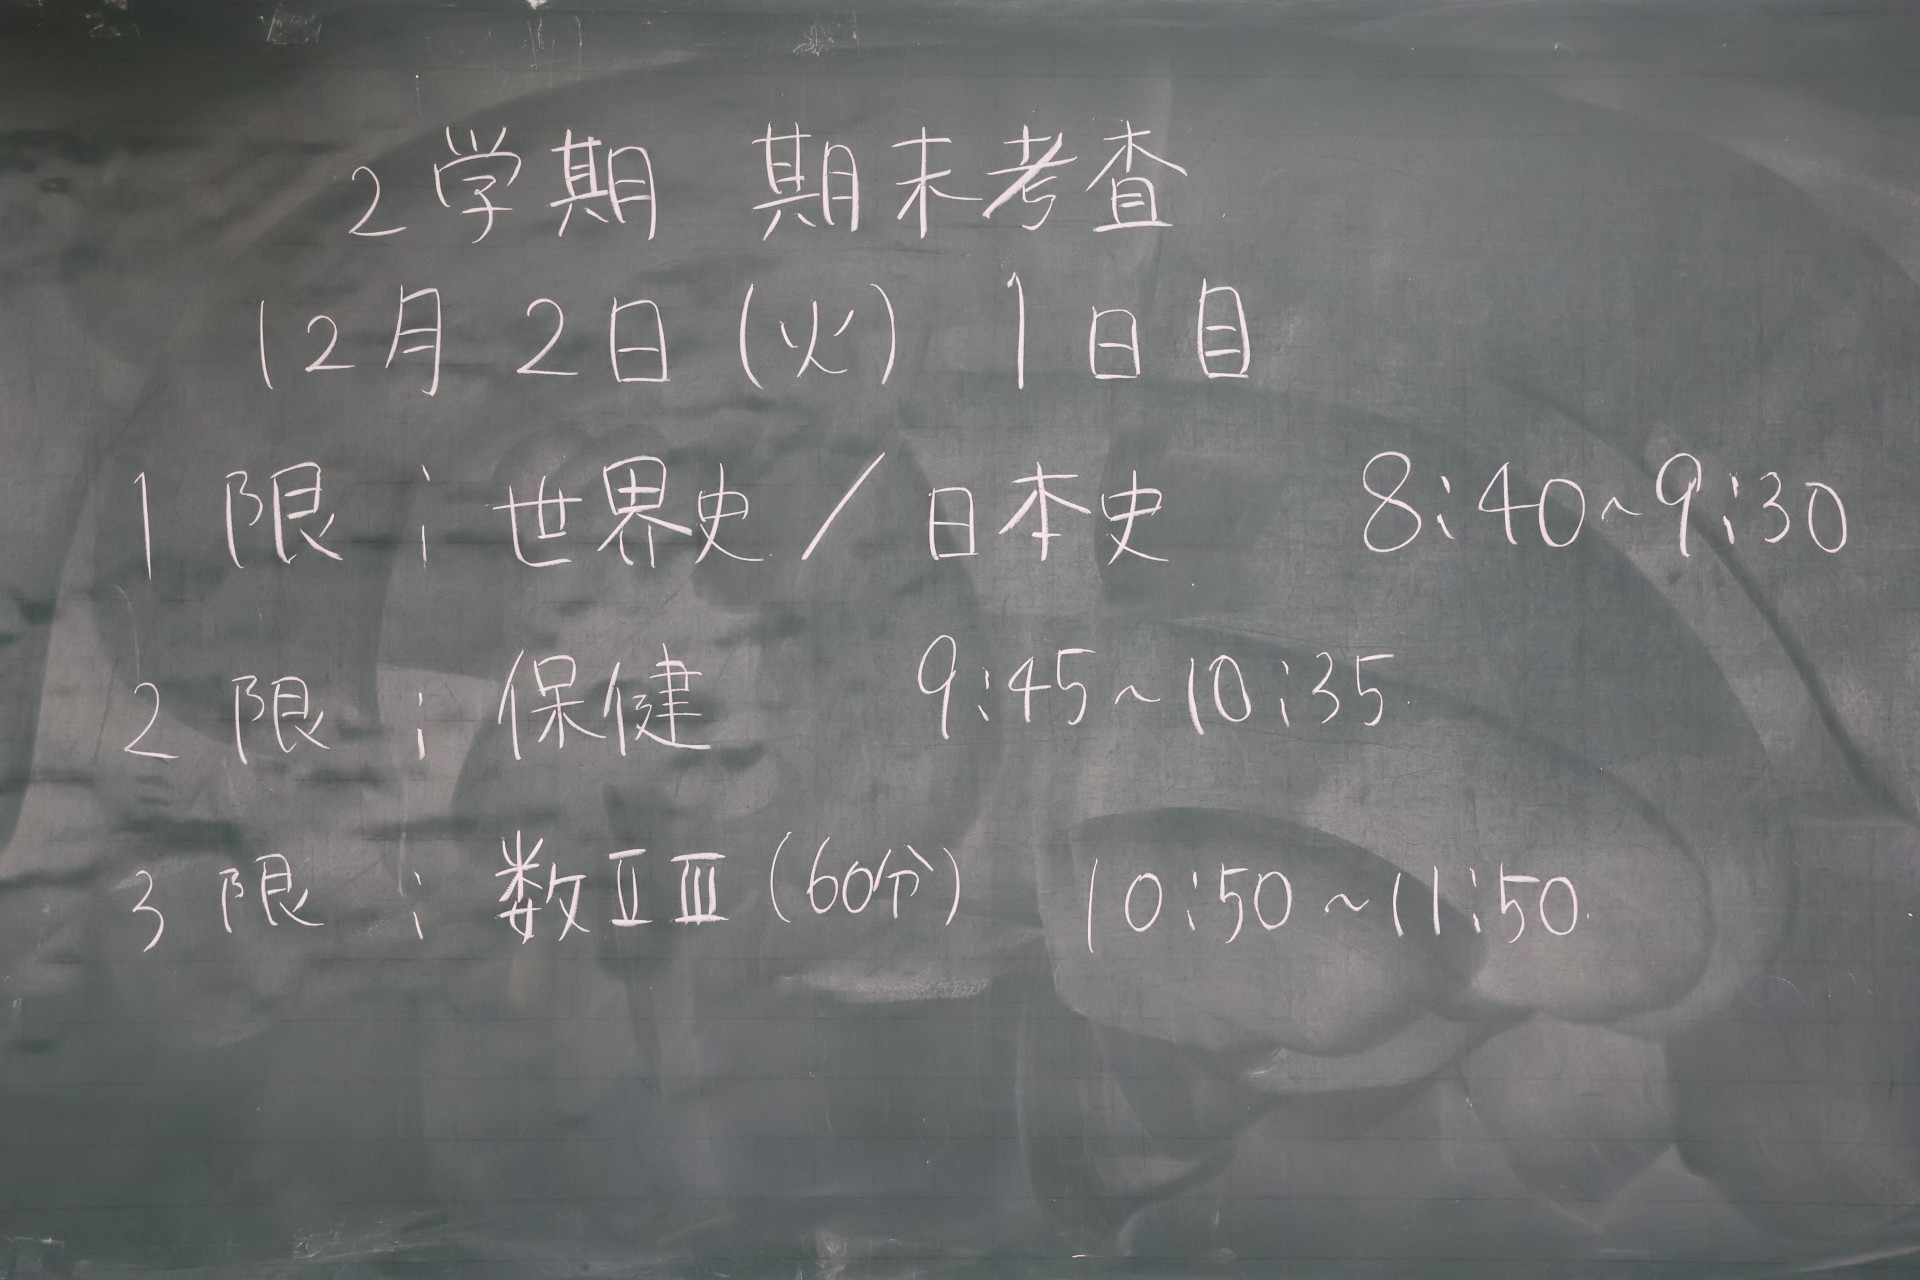 2学期 期末考査
12月 2日 (火) 1日目
1限 : 世界史/日本史 8:40~9:30
2限 : 保健 9:45~10:35
3限 : 数ⅡⅢ(60分) 10:50~11:50